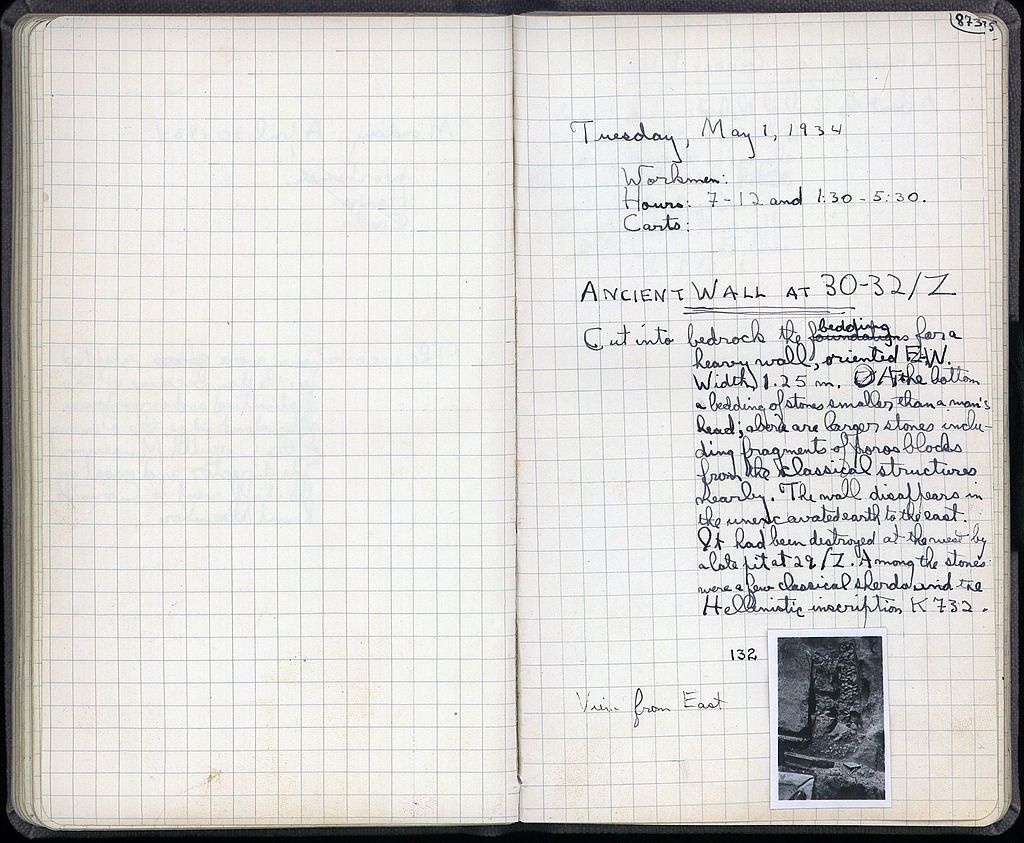 87375
Tuesday, May 1, 1934
Workmen:
Hours: 7-12 and 1:30-5:30.
Carts:
ANCIENT WALL AT 30-32/Z
Cut into bedrock the foundations bedding for a
heavy wall, oriented E-W.
Width, 1.25 m. At the bottom
a bedding of stones smaller than a man's
head; above are larger stones inclu-
ding fragments of poros blocks
from the classical structures
nearby. The wall disappears in
the unexcavated earth to the east.
It had been destroyed at the west by
a late pit at 29/Z. Among the stones
were a few classical sherds and the
Hellenistic inscription K 732.
132
View from East